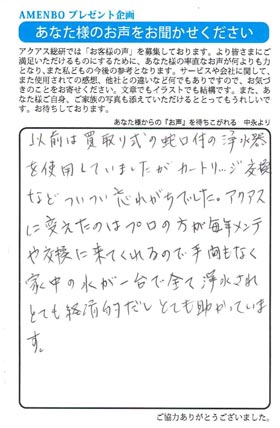 AMENBO プレゼント企画
あなた様のお声をお聞かせください
アクアス総研では「お客様の声」を募集しております。より皆さまにご
満足いただけるものにするために、あなた様の率直なお声が何よりも力
となり、また私どもの今後の参考となります。サービスや会社に関して、
また使用されての感想、他社との違いなど何でもありですので、お気づ
きのことをお寄せください。文章でもイラストでも結構です。また、あ
なた様ご自身、ご家族の写真も添えていただけるととってもうれしいで
す。お待ちしております。
あなた様からの『お声』を待ちこがれる 中永より
以前は買取り式の蛇口付の浄水器
を使用していましたがカートリッジ交換
などついつい忘れがちでした。アクアス
に変えたのはプロの方が毎年メンテ
や交換に来てくれるので手間もなく
家中の水が一台で全て浄水され
とても経済的だしとても助かっていま
す。
ご協力ありがとうございました。